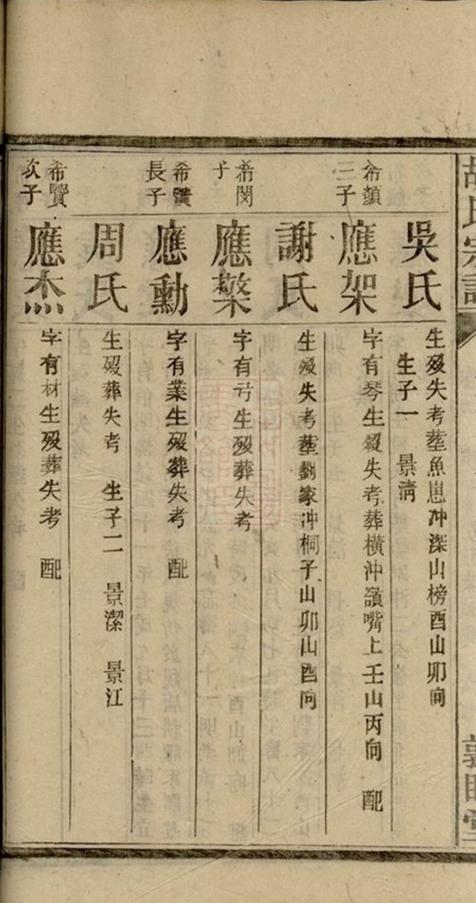 胡氏宗譜
敦睦堂
吳氏
生殁失考塟魚崽冲深山榜酉山卯向
生子一 景淸
希顏三子
應架
字有琴生殁失考葬橫沖嶺嘴上壬山丙向 配
謝氏
生殁失考塟劉家冲桐子山卯山酉向
希閔子
應檠
字有弓生殁葬失考
希賢長子
應勳
字有業生殁葬失考 配
周氏
生殁葬失考 生子二 景潔 景江
希賢次子
應杰
字有材生殁葬失考 配